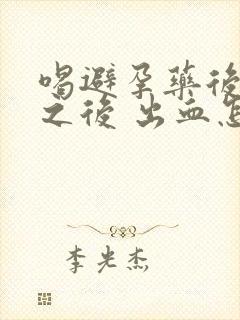 喝避孕藥後
之後 出血怎
李光杰